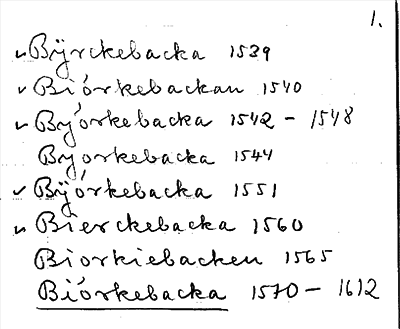 1.
✓ Bÿrckebacka 1539
✓ Biórkebackan 1540
✓ Byórkebacka 1542 - 1548
Byorkebacka 1544
✓ Bÿórkebacka 1551
✓ Bierckebacka 1560
Biorkiebacken 1565
Biórkebacka 1570 - 1612